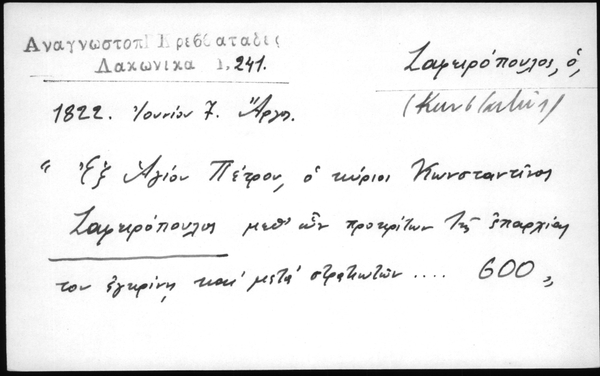 Αναγνωστοπ
Λακωνικα 1,241.
Ζαφειρόπουλος, ὁ,
(Κωνσταντῖνος)
1822. Ἰουνίου 7. Ἄργος.
" Ἐξ Ἁγίου Πέτρου, ὁ κύριος Κωνσταντῖνος
Ζαφειρόπουλος μεθ' ὧν προκρίτων τῆς ἐπαρχίας
του ἐγκρίνῃ καὶ μετὰ στρατιωτῶν .... 600 "